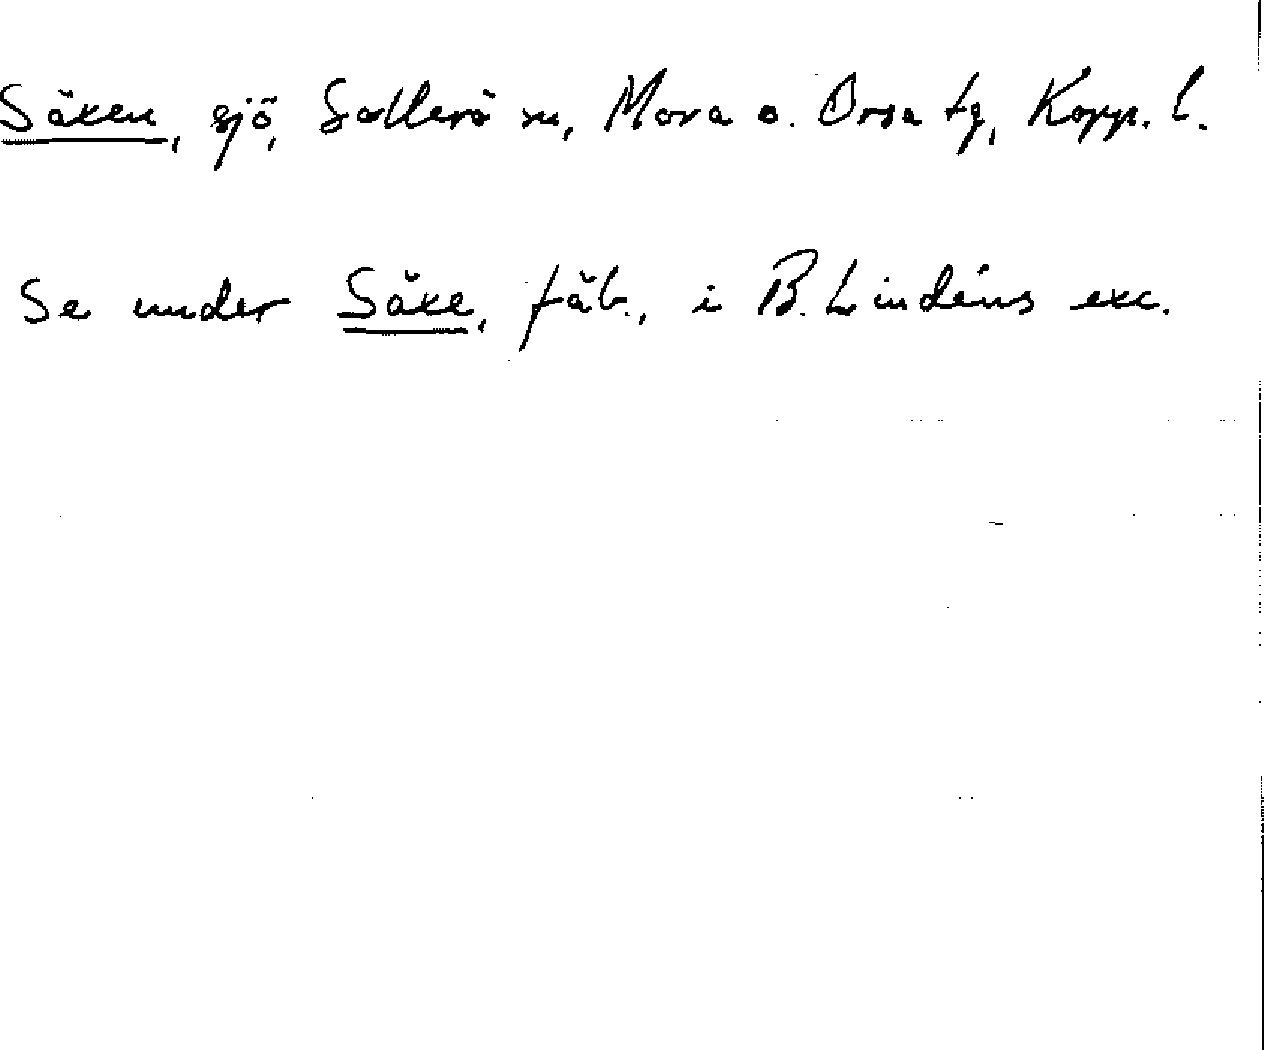 Säxen, sjö, Sollerö sn, Mora o. Orsa tg, Kopp. l.
Se under Säxe, fäb., i B. Lindéns exc.